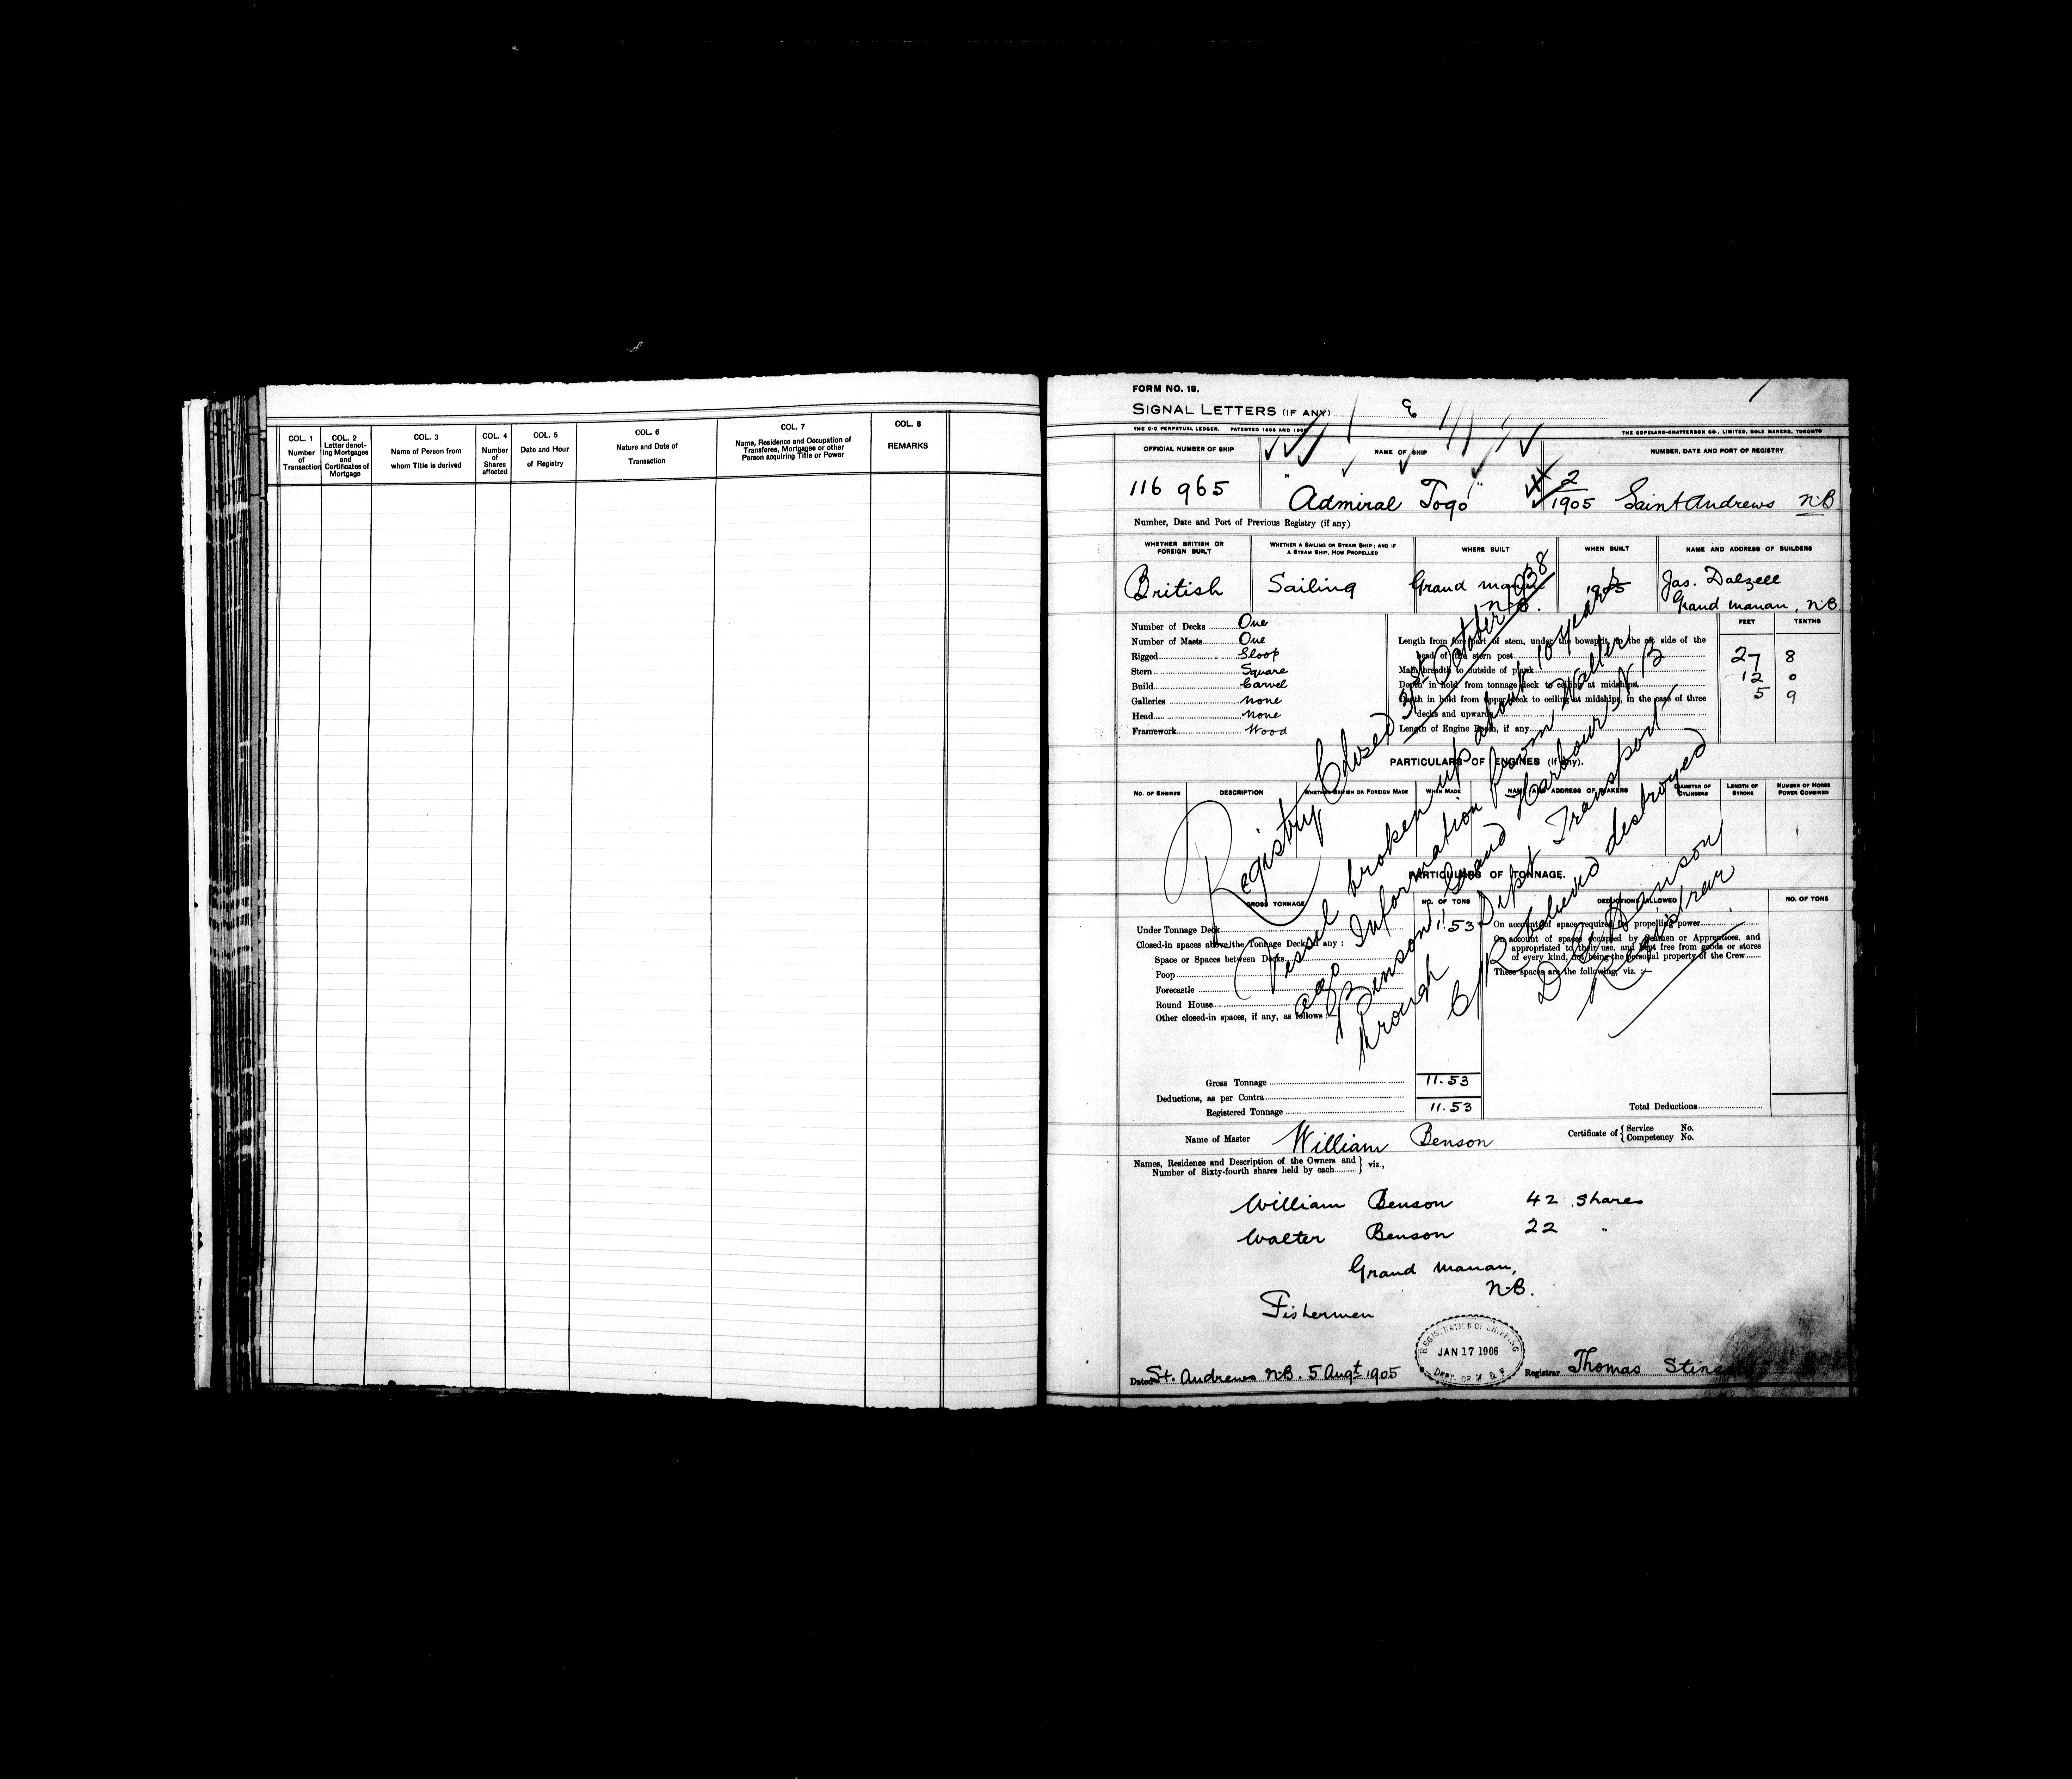 COL. 1
Number
of
Transaction
COL. 2
Letter denot-
ing Mortgages
and
Certificates of
Mortgage
COL. 3
Name of Person from
whom Title is derived
COL. 4
Number
of
Shares
affected
COL. 5
Date and Hour
of Registry
COL. 6
Nature and Date of
Transaction
COL. 7
Name, Residence and Occupation of
Transferee, Mortgagee or other
Person acquiring Title or Power
COL. 8
REMARKS
FORM NO. 19.
SIGNAL LETTERS (IF ANY)
THE C-C PERPETUAL LEDGER. PATENTED
THE COPELAND-CHATTERSON CO., LIMITED, SOLE MAKERS, TORONTO
OFFICIAL NUMBER OF SHIP
NAME OF SHIP
NUMBER, DATE AND PORT OF REGISTRY
116 965
"Admiral Togo"
2
1905 Saint Andrews N.B.
Number, Date and Port of Previous Registry (if any)
WHETHER BRITISH OR
FOREIGN BUILT
WHETHER A SAILING OR STEAM SHIP; AND IF
A STEAM SHIP, HOW PROPELLED
WHERE BUILT
WHEN BUILT
NAME AND ADDRESS OF BUILDERS
British
Sailing
Grand Manan
N.B.
1905
Jas. Dalzell
Grand Manan, N.B
Number of Decks One
Number of Masts One
Rigged Sloop
Stern Square
Build Carvel
Galleries None
Head None
Framework Wood
FEET TENTHS
Length from fore part of stem, under the bowsprit, to the aft side of the
head of the stern post 27 8
Main breadth to outside of plank 12 0
Depth in hold from tonnage deck to ceiling at midships 5 9
Depth in hold from upper deck to ceiling at midships, in the case of three
decks and upwards
Length of Engine Room, if any
PARTICULARS OF ENGINES (if any).
NO. OF ENGINES
DESCRIPTION
WHETHER BRITISH OR FOREIGN MADE
WHEN MADE
NAME AND ADDRESS OF MAKERS
DIAMETER OF
CYLINDERS
LENGTH OF
STROKE
NUMBER OF HORSE
POWER COMBINED
Registry Closed 31st October 1938
Vessel broken up about 10 years
ago Information from Walter
Benson Grand Harbour N B
through Dept Transport
C/R believed destroyed
Registrar
PARTICULARS OF TONNAGE.
GROSS TONNAGE
NO. OF TONS
DEDUCTIONS ALLOWED
NO. OF TONS
Under Tonnage Deck 11.53
Closed-in spaces above the Tonnage Deck, if any :
Space or Spaces between Decks
Poop
Forecastle
Round House
Other closed-in spaces, if any, as follows :
On account of space required for propelling power
On account of spaces occupied by Seamen or Apprentices, and
appropriated to their use, and kept free from goods or stores
of every kind, not being the personal property of the Crew
These spaces are the following, viz. :
Gross Tonnage 11.53
Deductions, as per Contra
Registered Tonnage 11.53
Total Deductions
Name of Master William Benson
Certificate of { Service No.
Competency No.
Names, Residence and Description of the Owners and
Number of Sixty-fourth shares held by each } viz.,
William Benson 42 Shares
Walter Benson 22 "
Grand Manan,
N.B.
Fishermen
REGISTRATION OF SHIPPING
JAN 17 1906
DEPT. OF M & F
Dated St. Andrews N.B. 5 Augt 1905
Registrar Thomas